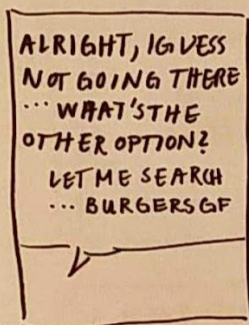 ALRIGHT, IGUESS
NOT GOING THERE
... WHAT'STHE
OTHER OPTION?
LET ME SEARCH
... BURGERSGF